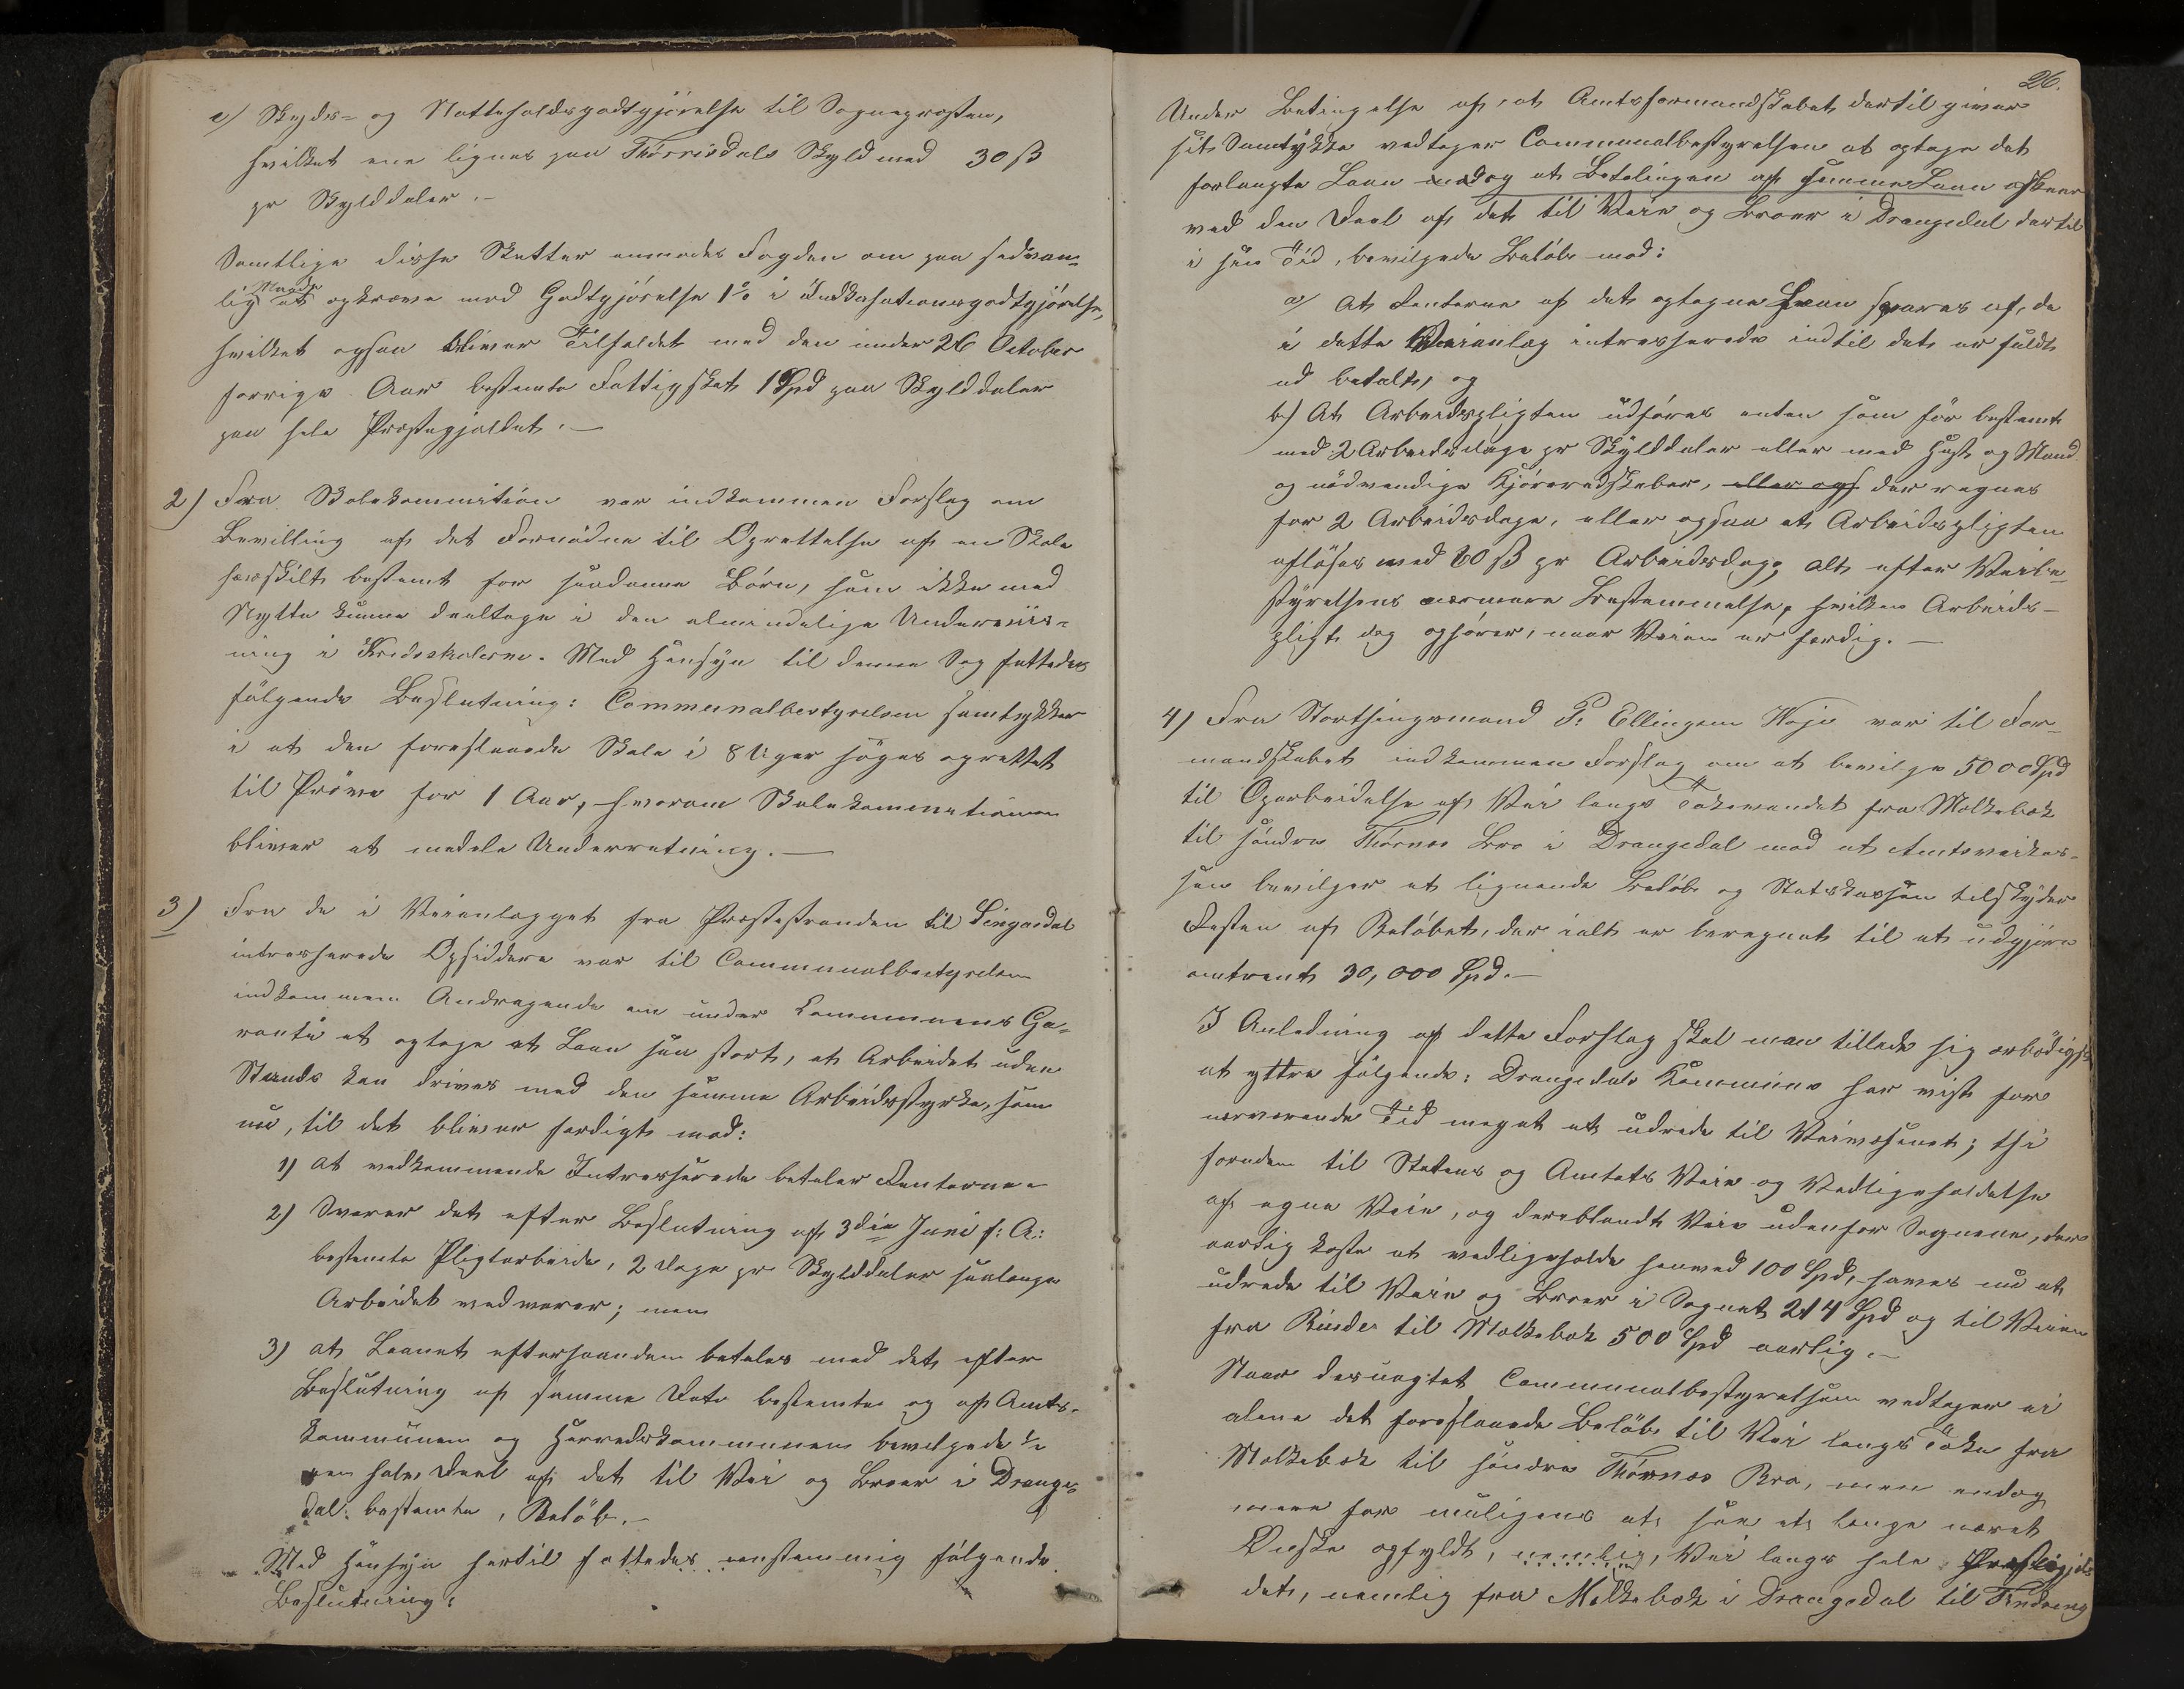 e) Skyds- og Natteholdsgodtgjörelse til Sognepresten,
hvilket ene lignes paa Thörrisdals Skyld med 30 ß
pr Skylddaler.-
Samtlige disse Skatter anmodes Fogden om paa sedvan-
lig Maade at opkræve mod Godtgjörelse 1% i Indkasationsgodtgjörelse,
hvilket ogsaa bliver Tilfældet med den under 26 October
forrige Aar bestemte Fattigskat 1 Spd paa Skylddaler
paa hele Præstegjældet.-
2) Fra Skolekommitionen var indkommen Forslag om
Bevilling af det Fornödne til Oprettelse af en Skole
særskilt bestemt for saadanne Börn, som ikke med
Nytte kunne deeltage i den almindelige Underviis-
ning i Kredsskolerne. Med Hensyn til denne Sag fattedes
fölgende Beslutning: Communalbestyrelsen samtykker
i at den foreslaaede Skole i 8 Uger söges oprettet
til Pröve for 1 Aar, hvorom Skolekommitionen
bliver at meddele Underretning.-
3) Fra de i Veianlægget fra Præstestranden til
intresserede Opsiddere var til Communalbestyrelsen
indkommen Andragende om under Communens Ga-
ranti at optage et Laan saa stort, at Arbeidet uden
Stands kan drives med den samme Arbeidsstyrke, som
nu, til det bliver færdigt mod:
1) at vedkommende Intresserede betaler Renterne
2) Svarer det efter Beslutning af 3die Juni f: A:
bestemte Pligtarbeide, 2 Dage pr Skylddaler saalænge
Arbeidet vedvarer; men
3) at Laanet efterhaanden betales med det efter
Beslutning af samme Dato bestemte og af Amts-
kommunen og Herredskommunen bevilgede ½
den halve Deel af det til Vei og Broer i Drange-
dal bestemte, Belöb.-
Med Hensyn hertil fattedes eenstemmig fölgende
Beslutning:
26.
Under Betingelse af, at Amtsformandskabet dertil giver
sit Samtykke vedtager Communalbestyrelsen at optage det
forlangte Laan og at Betalingen af samme Laan afskeer
ved den Deel af det til Veie og Broer i Drangedal dertil
i sin Tid, bevilgede Belöb mod:
a) At Renterne af det optagne Laan svares af, de
i dette Veianlæg intresserede indtil det er fuldt
ud betalt, og
b) At Arbeidspligten udföres enten som för bestemt
med 2 Arbeidsdage pr Skylddaler eller med Hest og Mand
og nödvendige Kjöreredskaber, eller ogs der regnes
for 2 Arbeidsdage, eller ogsaa at Arbeidspligten
aflöses med 60 ß pr Arbeidsdag, alt efter Veibe-
styrelsens nærmere Bestemmelse, hvilken Arbeids-
pligt dog ophörer, naar Veien er færdig.-
4) Fra Storthingsmand P. Ellingsen Voje var til For-
mandskabet indkommen Forslag om at bevilge 5000 Spd
til Oparbeidelse af Vei langs Tokevandet fra Molkebæk
til söndre Thörnes Bro i Drangedal mod at Amtsveikas-
sen bevilger et lignende Belöb og Statskassen tilskyder
Resten af Belöbet, der ialt er beregnet til at udgjöre
omtrent 30,000 Spd.-
I Anledning af dette Forslag skal man tillade sig ærbödigst
at yttre fölgende: Drangedals Kommune har vist for
nærværende Tid meget at udrede til Veivæsenet; thi
foruden til Statens og Amtets Veie og Vedligeholdelse
af egne Veie, og deriblandt Veie udenfor Sognene, der
aarlig koste at vedligeholde henved 100 Spd, haves nu at
udrede til Veie og Broer i Sognet 214 Spd og til Veien
fra Rinde til Molkebæk 500 Spd aarlig.-
Naar desuagtet Communalbestyrelsen vedtager ei
alene det foreslaaede Belöb til Vei langs Toke fra
Molkebæk til söndre Thörnes Bro, men endog
mere for muligens at faae et længe næret
Önske opfyldt, nemlig, Vei langs hele Præstegjæl-
det, nemlig fra Molkebæk i Drangedal til